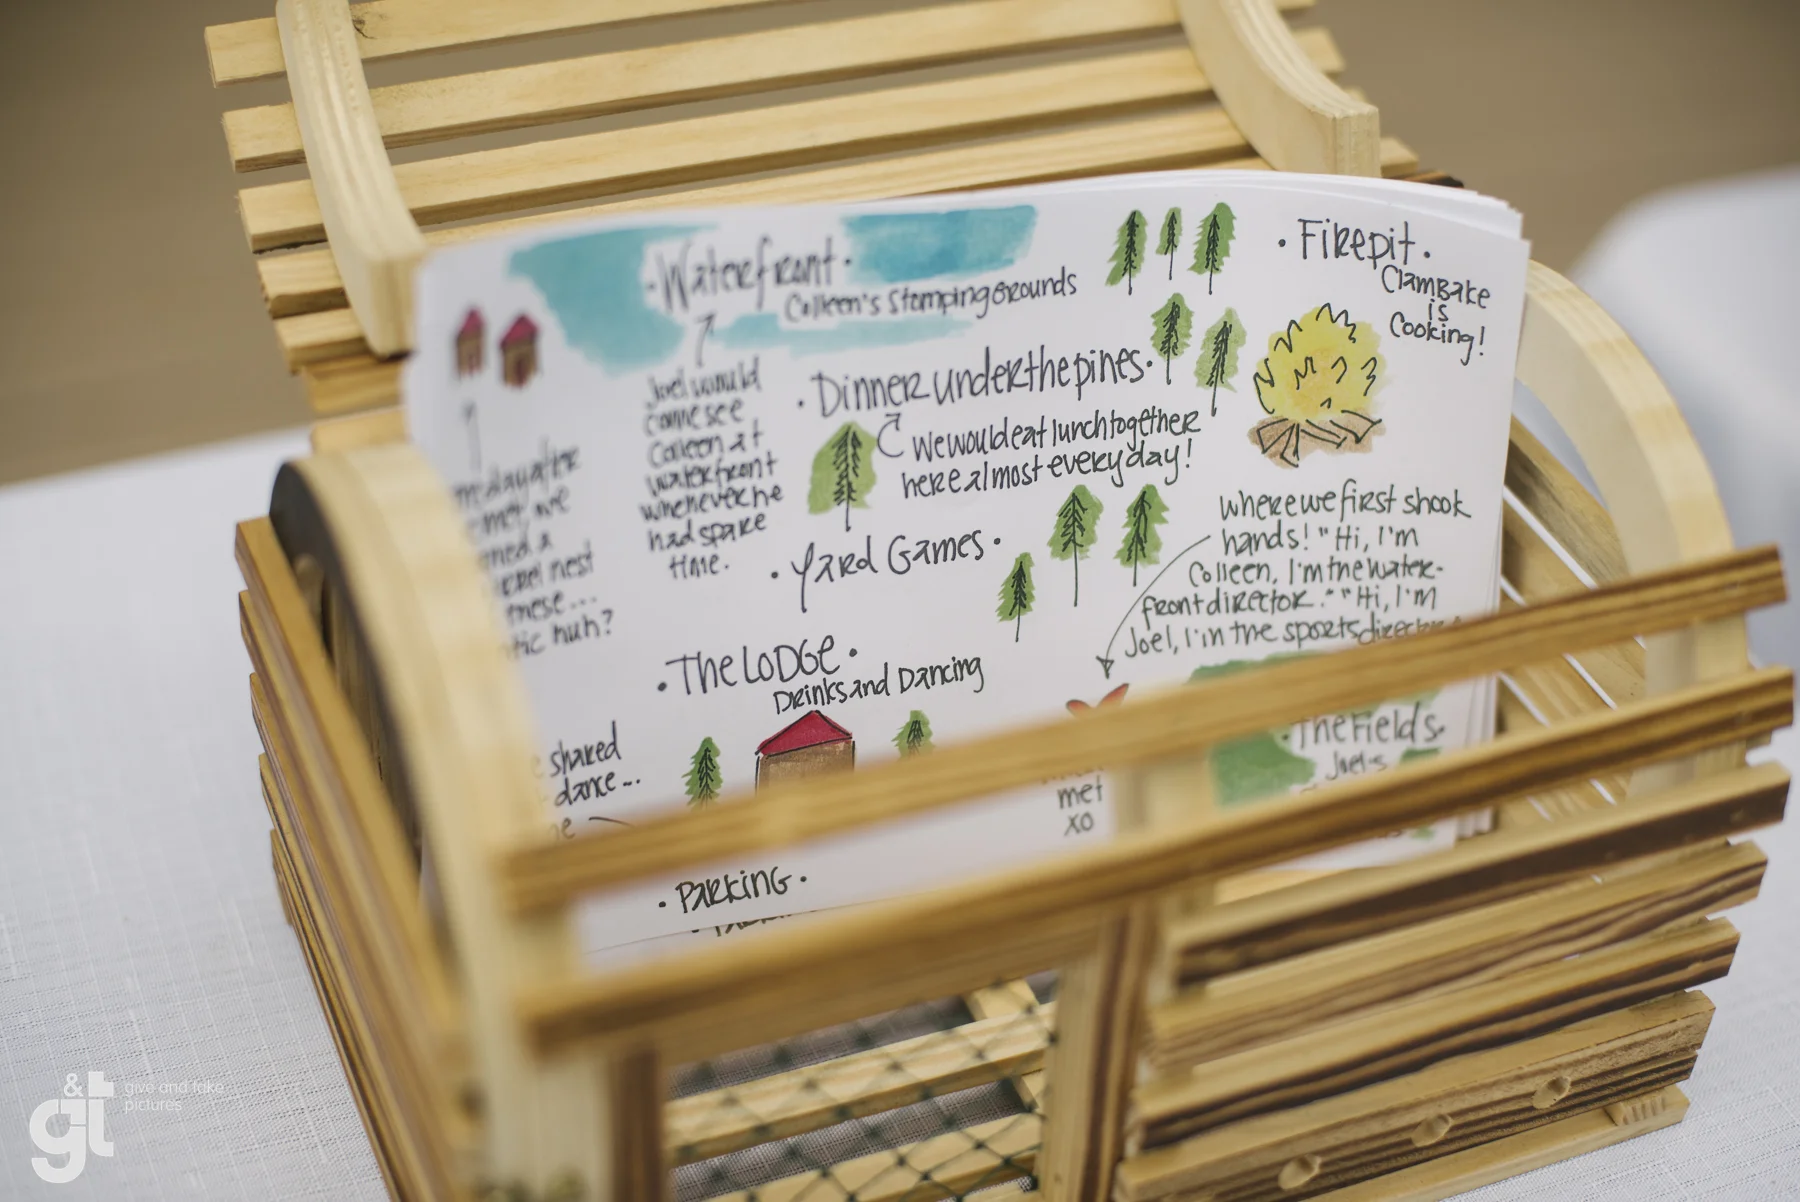 ·Waterfront·
Colleen's Stomping Grounds
Joel would
come see
Colleen at
waterfront
whenever he
had spare
time.
·Firepit·
Clambake
is
Cooking!
·Dinner under the pines·
we would eat lunch together
here almost every day!
·Yard Games·
day after
met, we
nest
these...
huh?
where we first shook
hands! "Hi, I'm
Colleen, I'm the water-
front director." "Hi, I'm
Joel, I'm the sports director
·The Lodge·
Drinks and Dancing
shared
dance...
met
xo
·The Fields·
Joel's
·Parking·
g&t
give and take
pictures